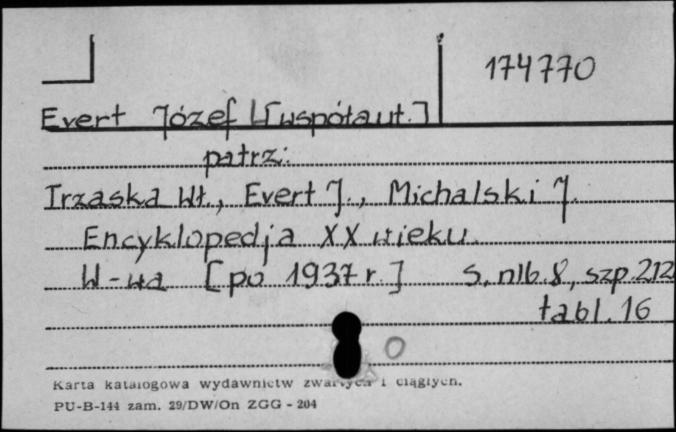 174770
Evert Józef [współaut.]
patrz:
Trzaska Wł., Evert J., Michalski J.
Encyklopedja XX wieku.
W-wa [po 1937 r.] S. nlb. 8, szp. 212
tabl. 16
Karta katalogowa wydawnictw zwartych i ciągłych.
PU-B-144 zam. 29/DW/On ZGG - 204